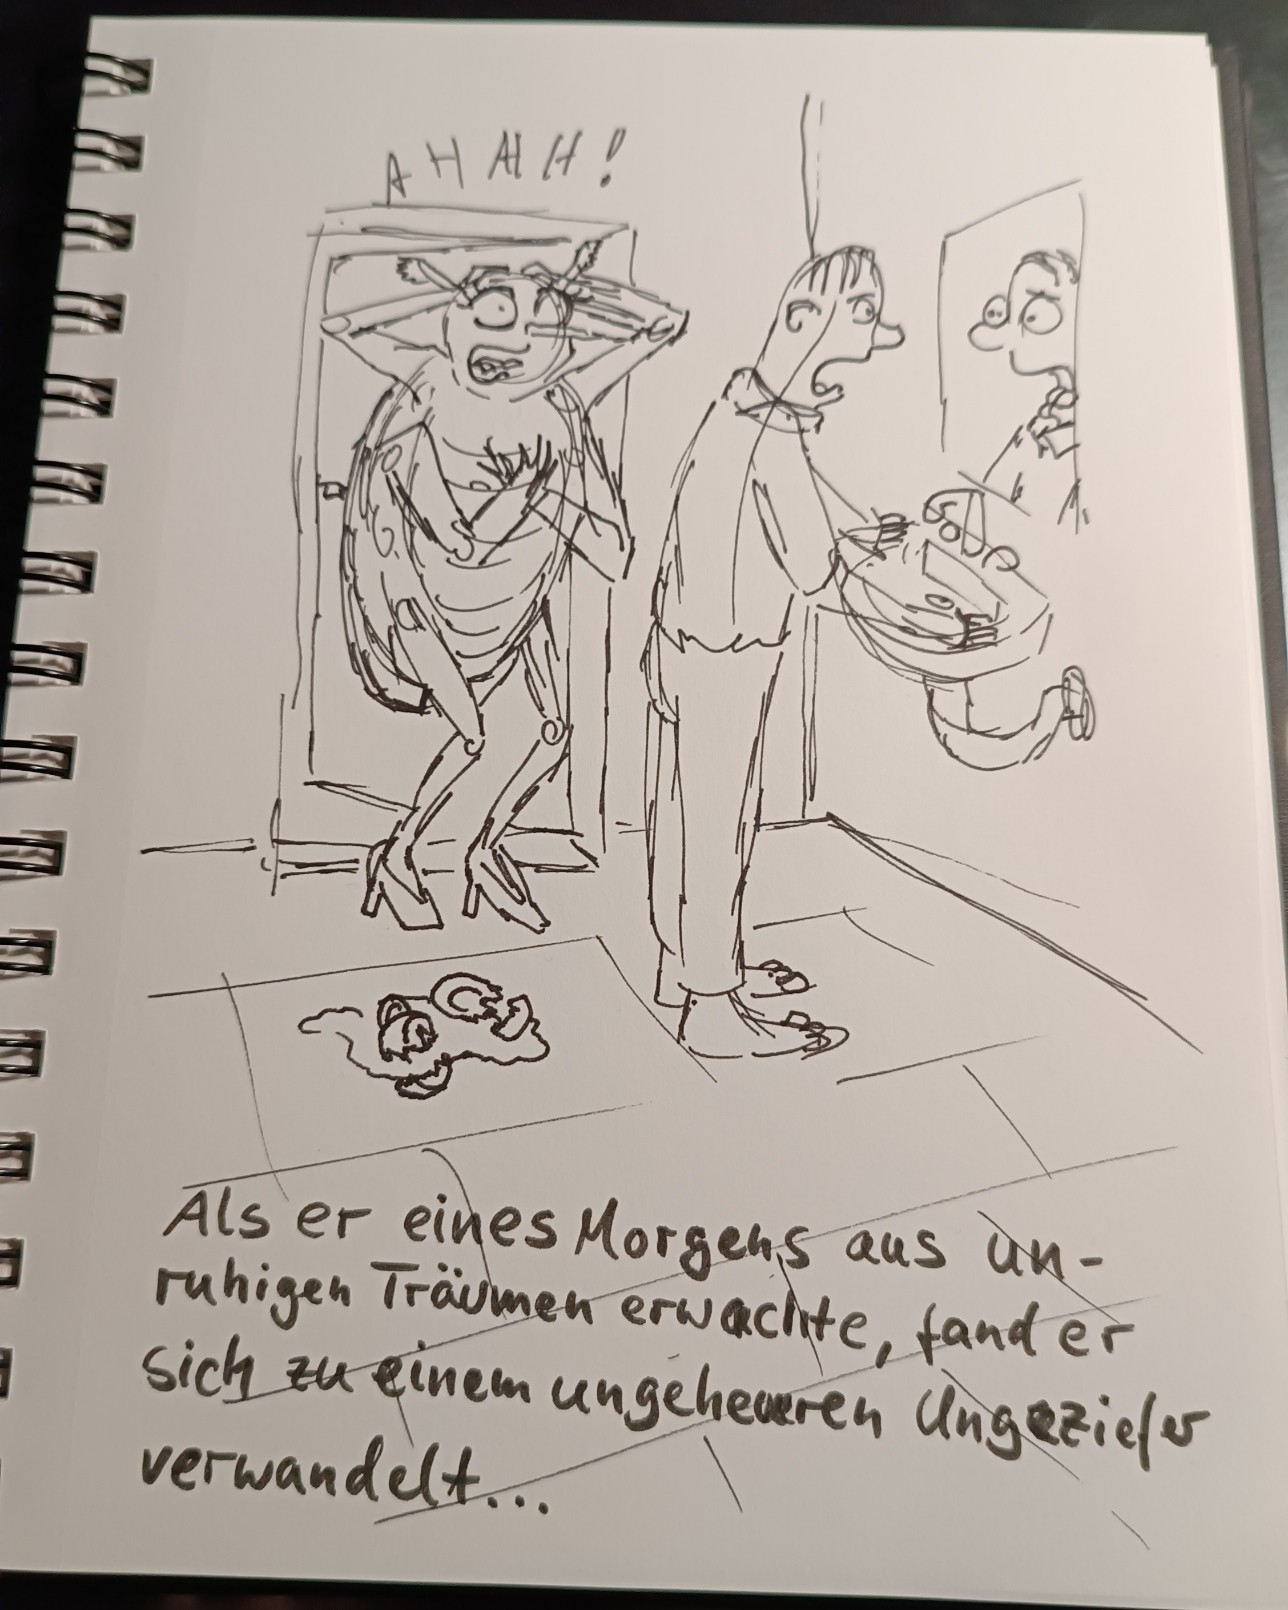 AHAH!
Als er eines Morgens aus un-
ruhigen Träumen erwachte, fand er
sich zu einem ungeheuren Ungeziefer
verwandelt...